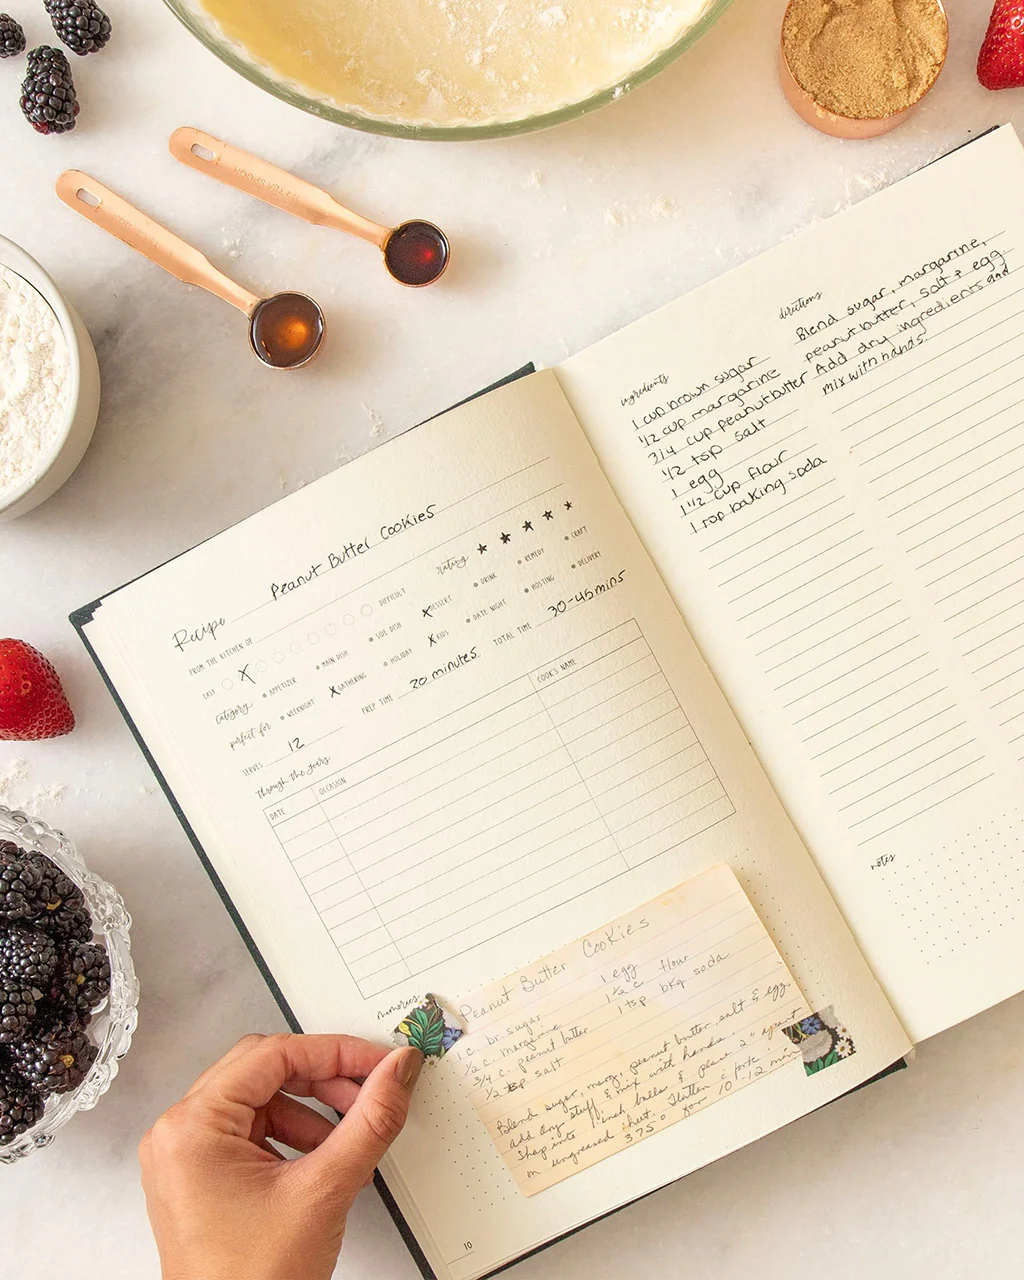 Recipe Peanut Butter Cookies
FROM THE KITCHEN OF
rating ★ ★ ★ ★ ★
EASY X DIFFICULT
category • APPETIZER • MAIN DISH • SIDE DISH X DESSERT • DRINK • REMEDY • CRAFT
perfect for • WEEKNIGHT X GATHERING • HOLIDAY X KIDS • DATE NIGHT • HOSTING • DELIVERY
SERVES 12 PREP TIME 20 minutes TOTAL TIME 30-45 mins
through the years
DATE OCCASION COOK'S NAME
memories
Peanut Butter Cookies
1 c. br. sugar
1/2 c. margarine
3/4 c. peanut butter
1/2 tsp salt
1 egg
1 1/2 c. flour
1 tsp bkg soda
Blend sugar, marg, peanut butter, salt & egg.
add dry stuff, & mix with hands.
Shape into 1-inch balls & place 2" apart
on ungreased sheet. Flatten c fork
375° for 10-12 min
10
ingredients
1 cup brown sugar
1/2 cup margarine
3/4 cup peanut butter
1/2 tsp salt
1 egg
1 1/2 cup flour
1 tsp baking soda
directions
Blend sugar, margarine,
peanut butter, salt + egg.
Add dry ingredients and
mix with hands.
notes